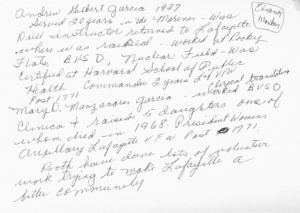 Andrew Gilbert Garcia 1987
Served 20 years in the Marines - Was
Drill instructor returned to Lafayette
where he was raised - worked at Rocky
Flats, BVSD, Nuclear Field - Was
Certified at Harvard School of Public
Health Commander 2 years of VFW
Post 1771
Mary D. Manzanares Garcia - worked BVSD,
Clinica & raised 5 daughters one of
whom died in 1968. President Womens
Auxillary Lafayette VFW Post 1771.
Both have done lots of volunteer
work trying to make Lafayette a
better community
Clerical